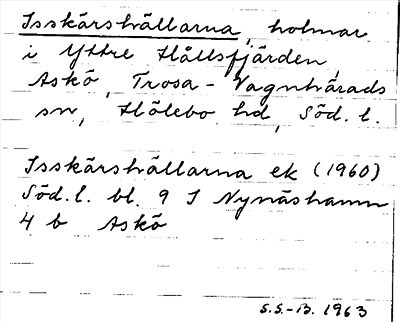 Isskärshällarna, holmar
i Yttre Hållsfjärden,
Askö, Trosa-Vagnhärads
sn, Hölebo hd, Söd. l.
Isskärshällarna ek (1960)
Söd. l. bl. 9 I Nynäshamn
4 b Askö
S.S.-B. 1963